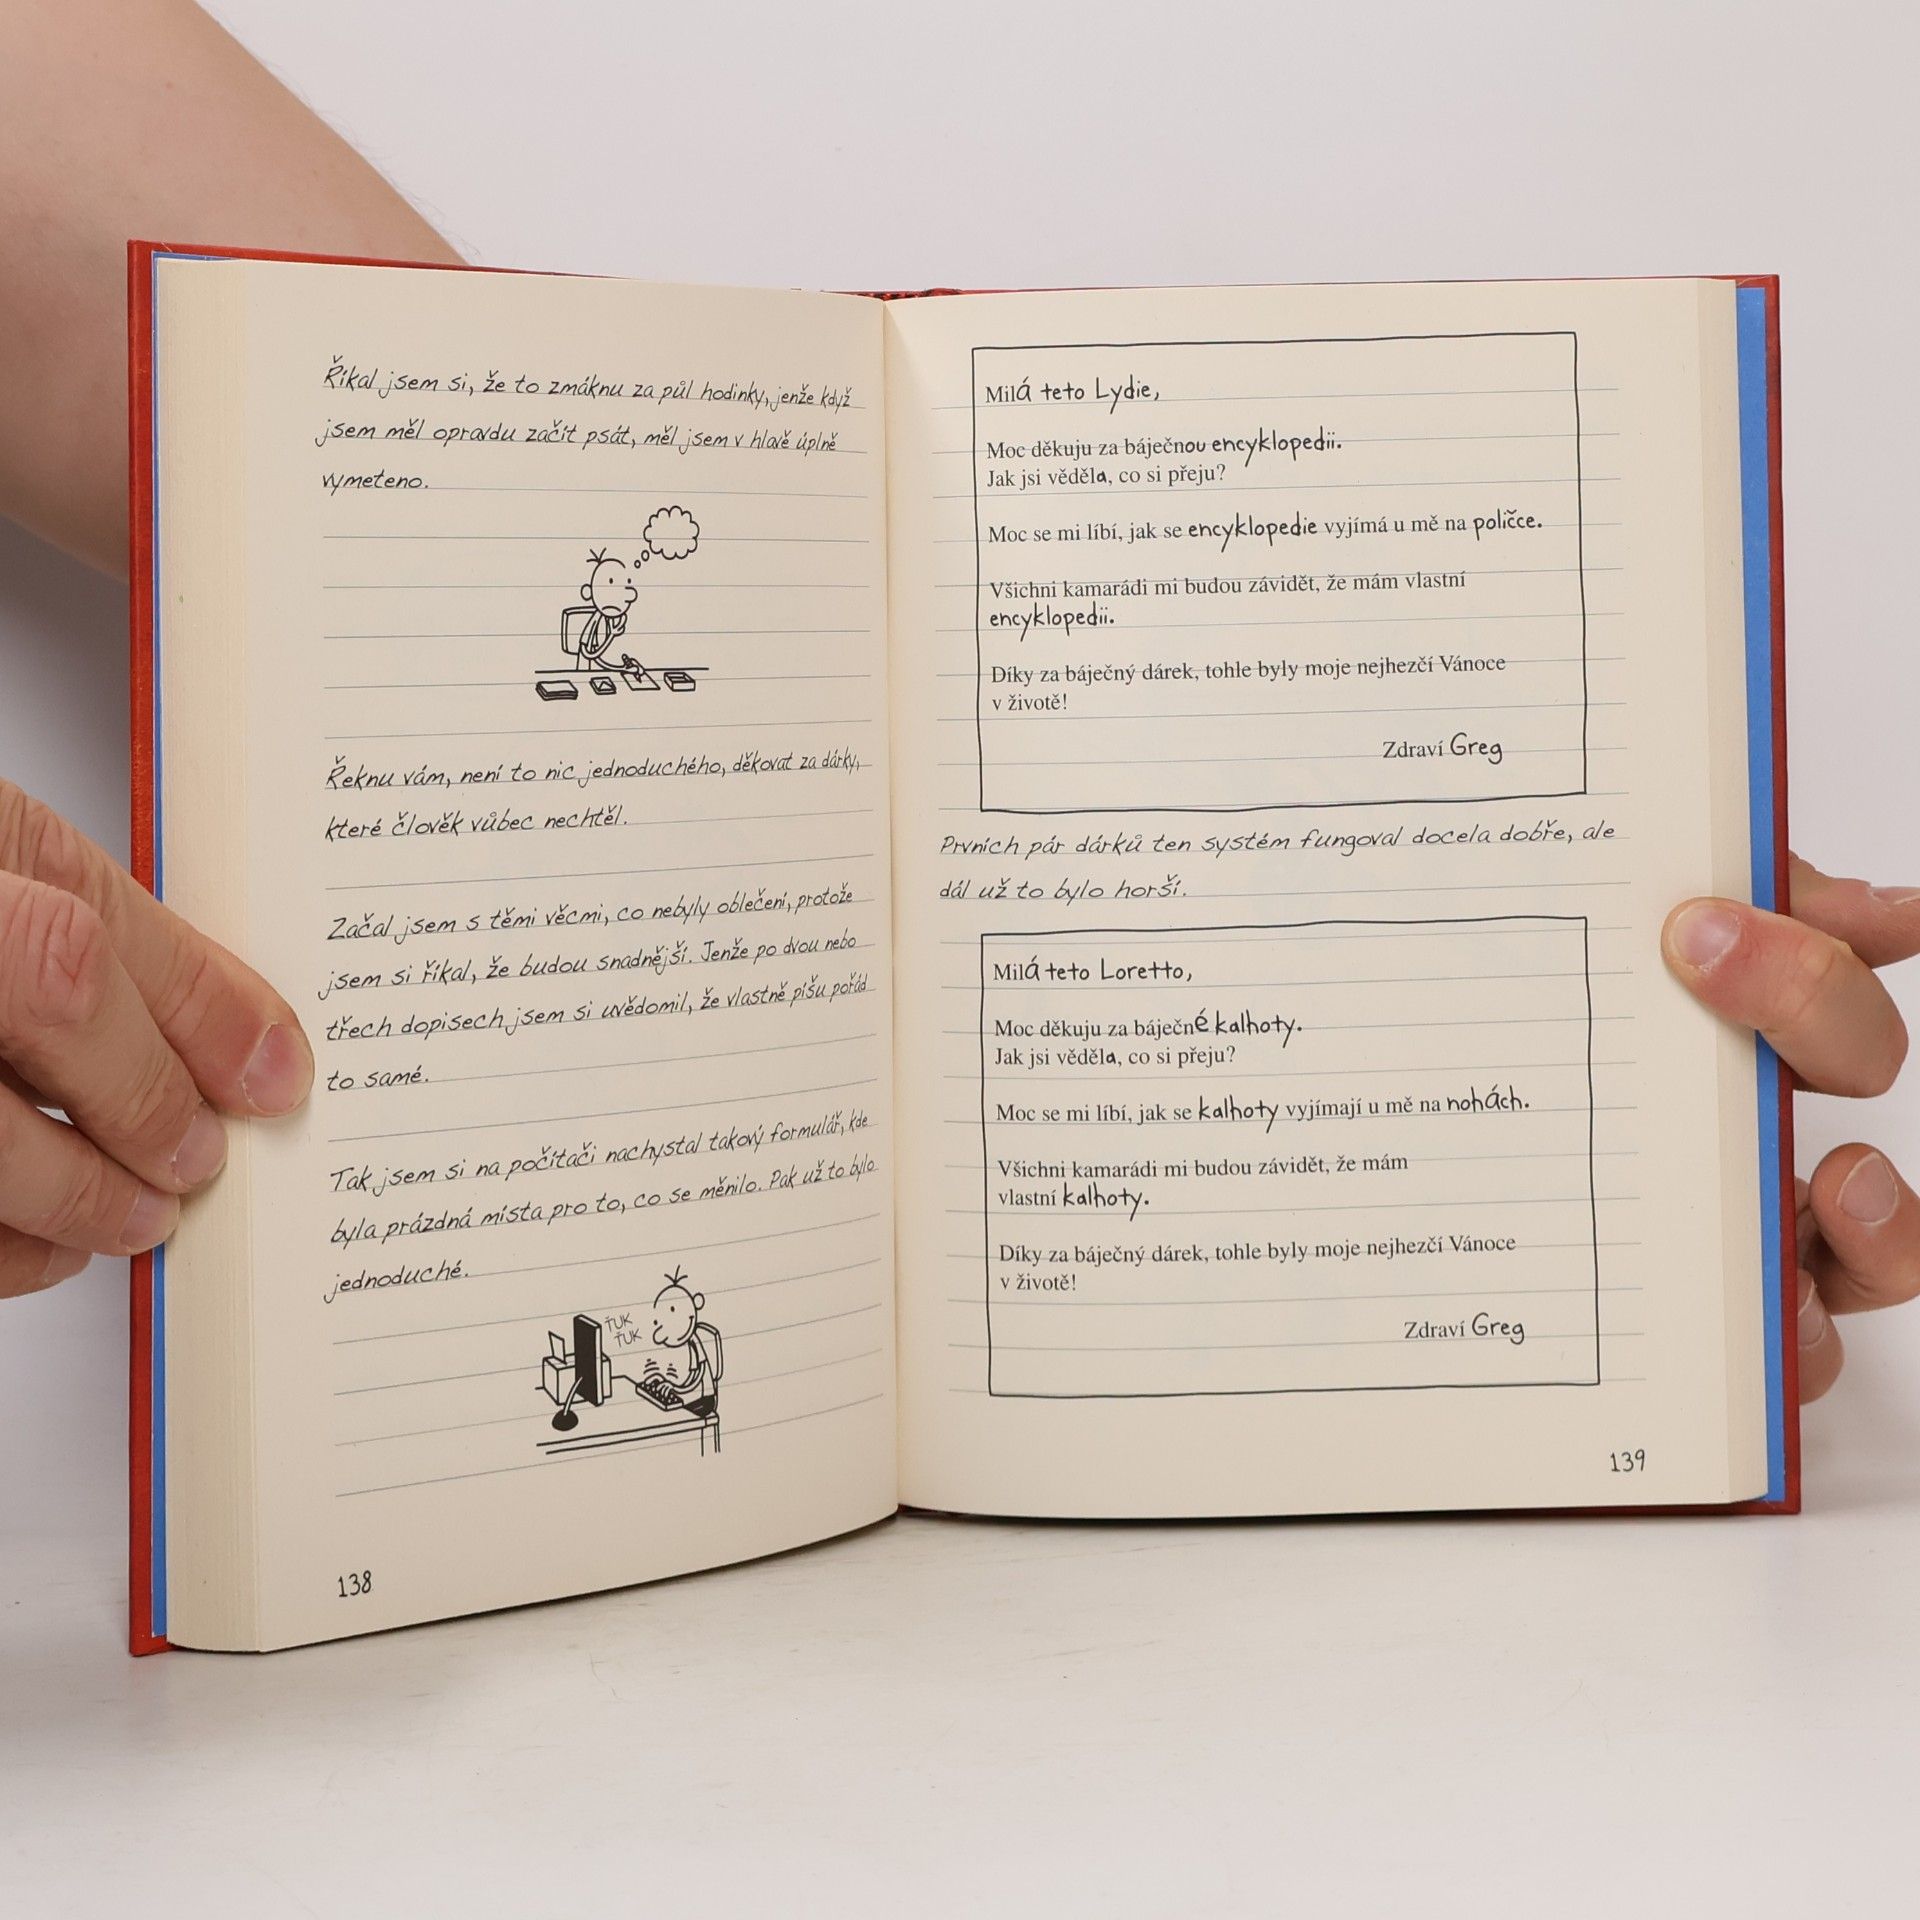 Říkal jsem si, že to zmáknu za půl hodinky, jenže když
jsem měl opravdu začít psát, měl jsem v hlavě úplně
vymeteno.
Řeknu vám, není to nic jednoduchého, děkovat za dárky,
které člověk vůbec nechtěl.
Začal jsem s těmi věcmi, co nebyly oblečení, protože
jsem si říkal, že budou snadnější. Jenže po dvou nebo
třech dopisech jsem si uvědomil, že vlastně píšu pořád
to samé.
Tak jsem si na počítači nachystal takový formulář, kde
byla prázdná místa pro to, co se měnilo. Pak už to bylo
jednoduché.
ŤUK
ŤUK
138
Milá teto Lydie,
Moc děkuju za báječnou encyklopedii.
Jak jsi věděla, co si přeju?
Moc se mi líbí, jak se encyklopedie vyjímá u mě na poličce.
Všichni kamarádi mi budou závidět, že mám vlastní
encyklopedii.
Díky za báječný dárek, tohle byly moje nejhezčí Vánoce
v životě!
Zdraví Greg
Prvních pár dárků ten systém fungoval docela dobře, ale
dál už to bylo horší.
Milá teto Loretto,
Moc děkuju za báječné kalhoty.
Jak jsi věděla, co si přeju?
Moc se mi líbí, jak se kalhoty vyjímají u mě na nohách.
Všichni kamarádi mi budou závidět, že mám
vlastní kalhoty.
Díky za báječný dárek, tohle byly moje nejhezčí Vánoce
v životě!
Zdraví Greg
139